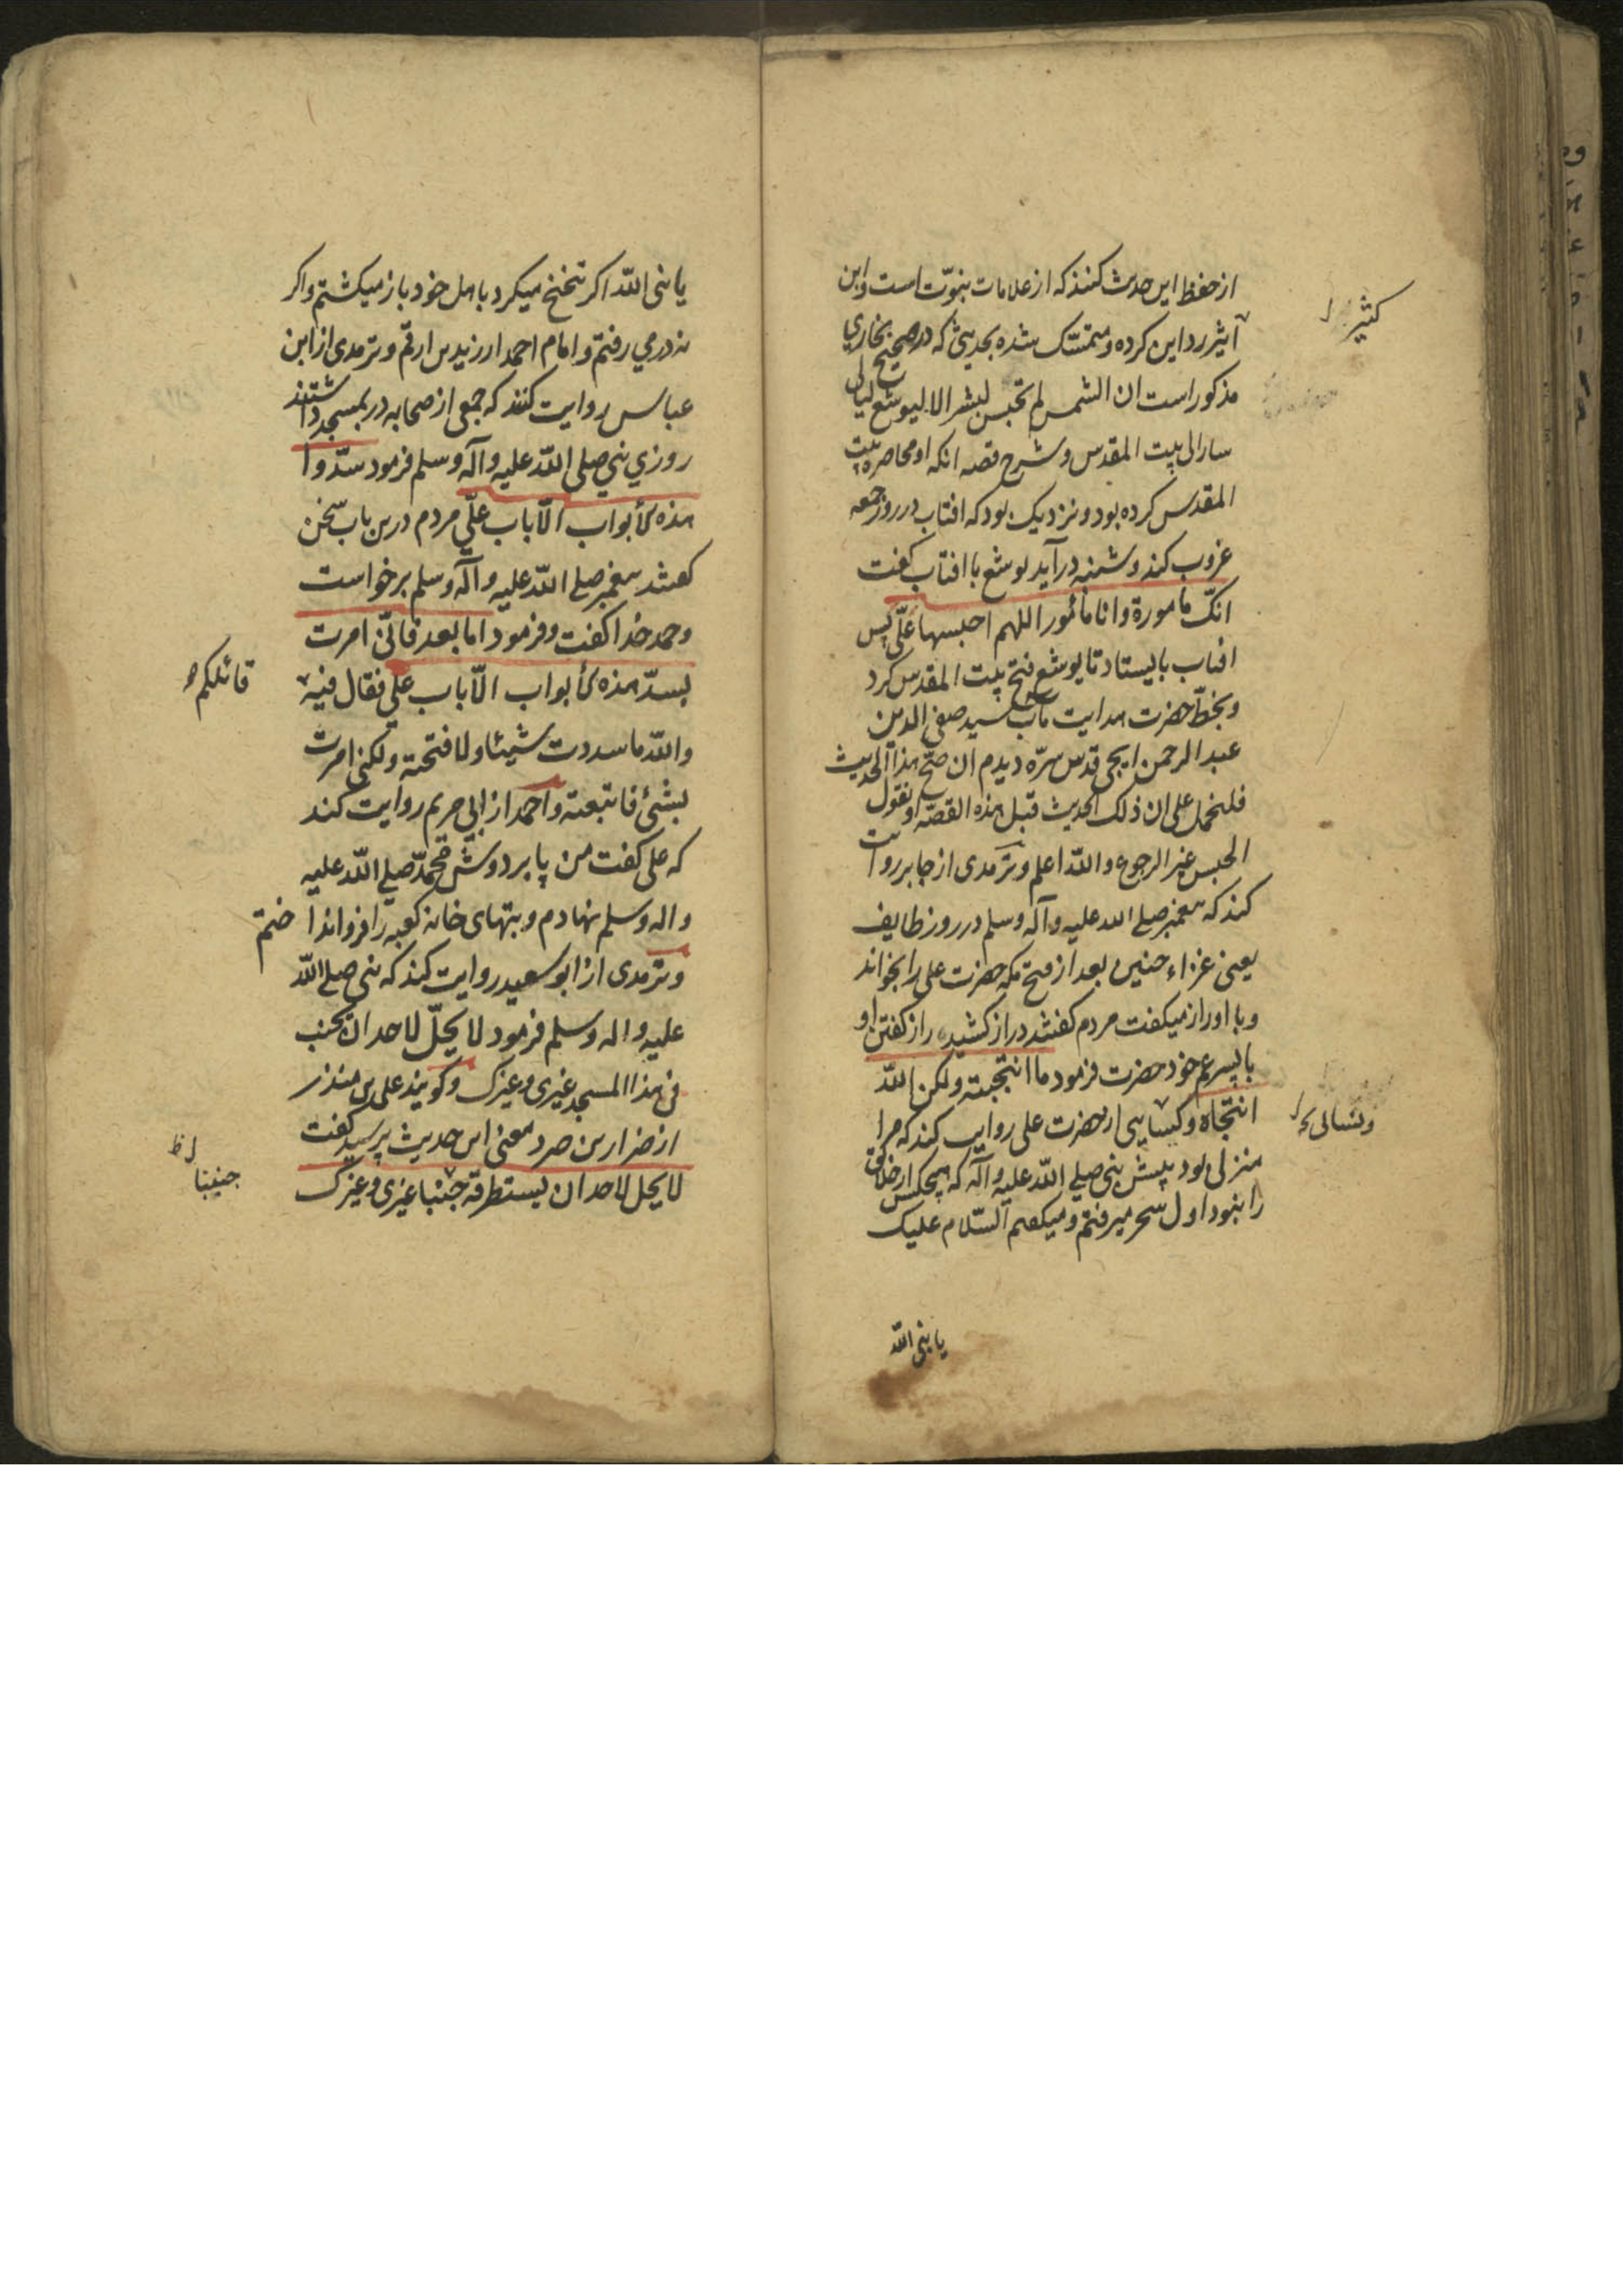 از حفظ این حدیث کنند که از علامات نبوّت است و ابن
اثیر رد این کرده و متمسّک شده بحدیثی که در صحیح بخاری
مذکور است ان الشمس لم تحبس لبشر الا لیوشع لیالی
سار الی بیت المقدس و شرح قصه انکه او محاصرهٔ بیت
المقدس کرده بود و نزدیک بود که افتاب در روز جمعه
غروب کند و شنبه درآید یوشع با افتاب کفت
انک مامورة وانا مأمور اللهم احبسها علیّ پس
افتاب بایستاد تا یوشع فتح بیت المقدس کرد
و بخطّ حضرت هدایت مآب سید صفی الدین
عبد الرحمن ایجی قدس سرّه دیدم ان صحّ هذا الحدیث
فلیحمل علی ان ذلک الحدیث قبل هذه القصّه او نقول
الحبس غیر الرجوع والله اعلم و ترمدی از جابر روایت
کند که پیغمبر صلی الله علیه وآله وسلم در روز طایف
یعنی غزاء حنین بعد از فتح مکه حضرت علی را بخواند
و با او راز میکفت مردم کفتند دراز کشید راز کفتن او
با پسر عم خود حضرت فرمود ما انتجیته ولکن الله
انتجاه و کسایی از حضرت علی روایت کند که مرا
منزلی بود پیش نبی صلی الله علیه وآله که هیچکس از خلایق
را نبود اول سحر میرفتم و میکفتم السّلام علیک
یا نبی الله
کثیر
ونسائی
یا نبی الله اکر تنحنح میکرد باهل خود باز میکشتم و اکر
نه در می رفتم و امام احمد از زید بن ارقم و ترمدی از ابن
عباس روایت کنند که جمعی از صحابه در بمسجد داشتند
روزی نبی صلی الله علیه وآله وسلم فرمود سدّوا
هذه الأبواب الّا باب علیّ مردم درین باب سخن
کفتند پیغمبر صلی الله علیه وآله وسلم برخواست
و حمد خدا کفت و فرمود اما بعد فانّی امرت
بسدّ هذه الأبواب الّا باب علی فقال فیه
والله ما سددت شیئا ولا فتحته ولکنی امرت
بشئ فاتبعته و احمد از ابی مریم روایت کند
که علی کفت من پا بر دوش محمّد صلی الله علیه
واله وسلم نهادم و بتهای خانه کعبه را فرو انداختم
و ترمدی از ابو سعید روایت کند که نبی صلی الله
علیه واله وسلم فرمود لا یحلّ لاحد ان یجنب
فی هذا المسجد غیری وغیرک و کویند علی بن منذر
از ضرار بن صرد معنی این حدیث پرسید کفت
لا یحل لاحد ان یستطرقه جنبا غیری وغیرک
قائلکم
جنبنا